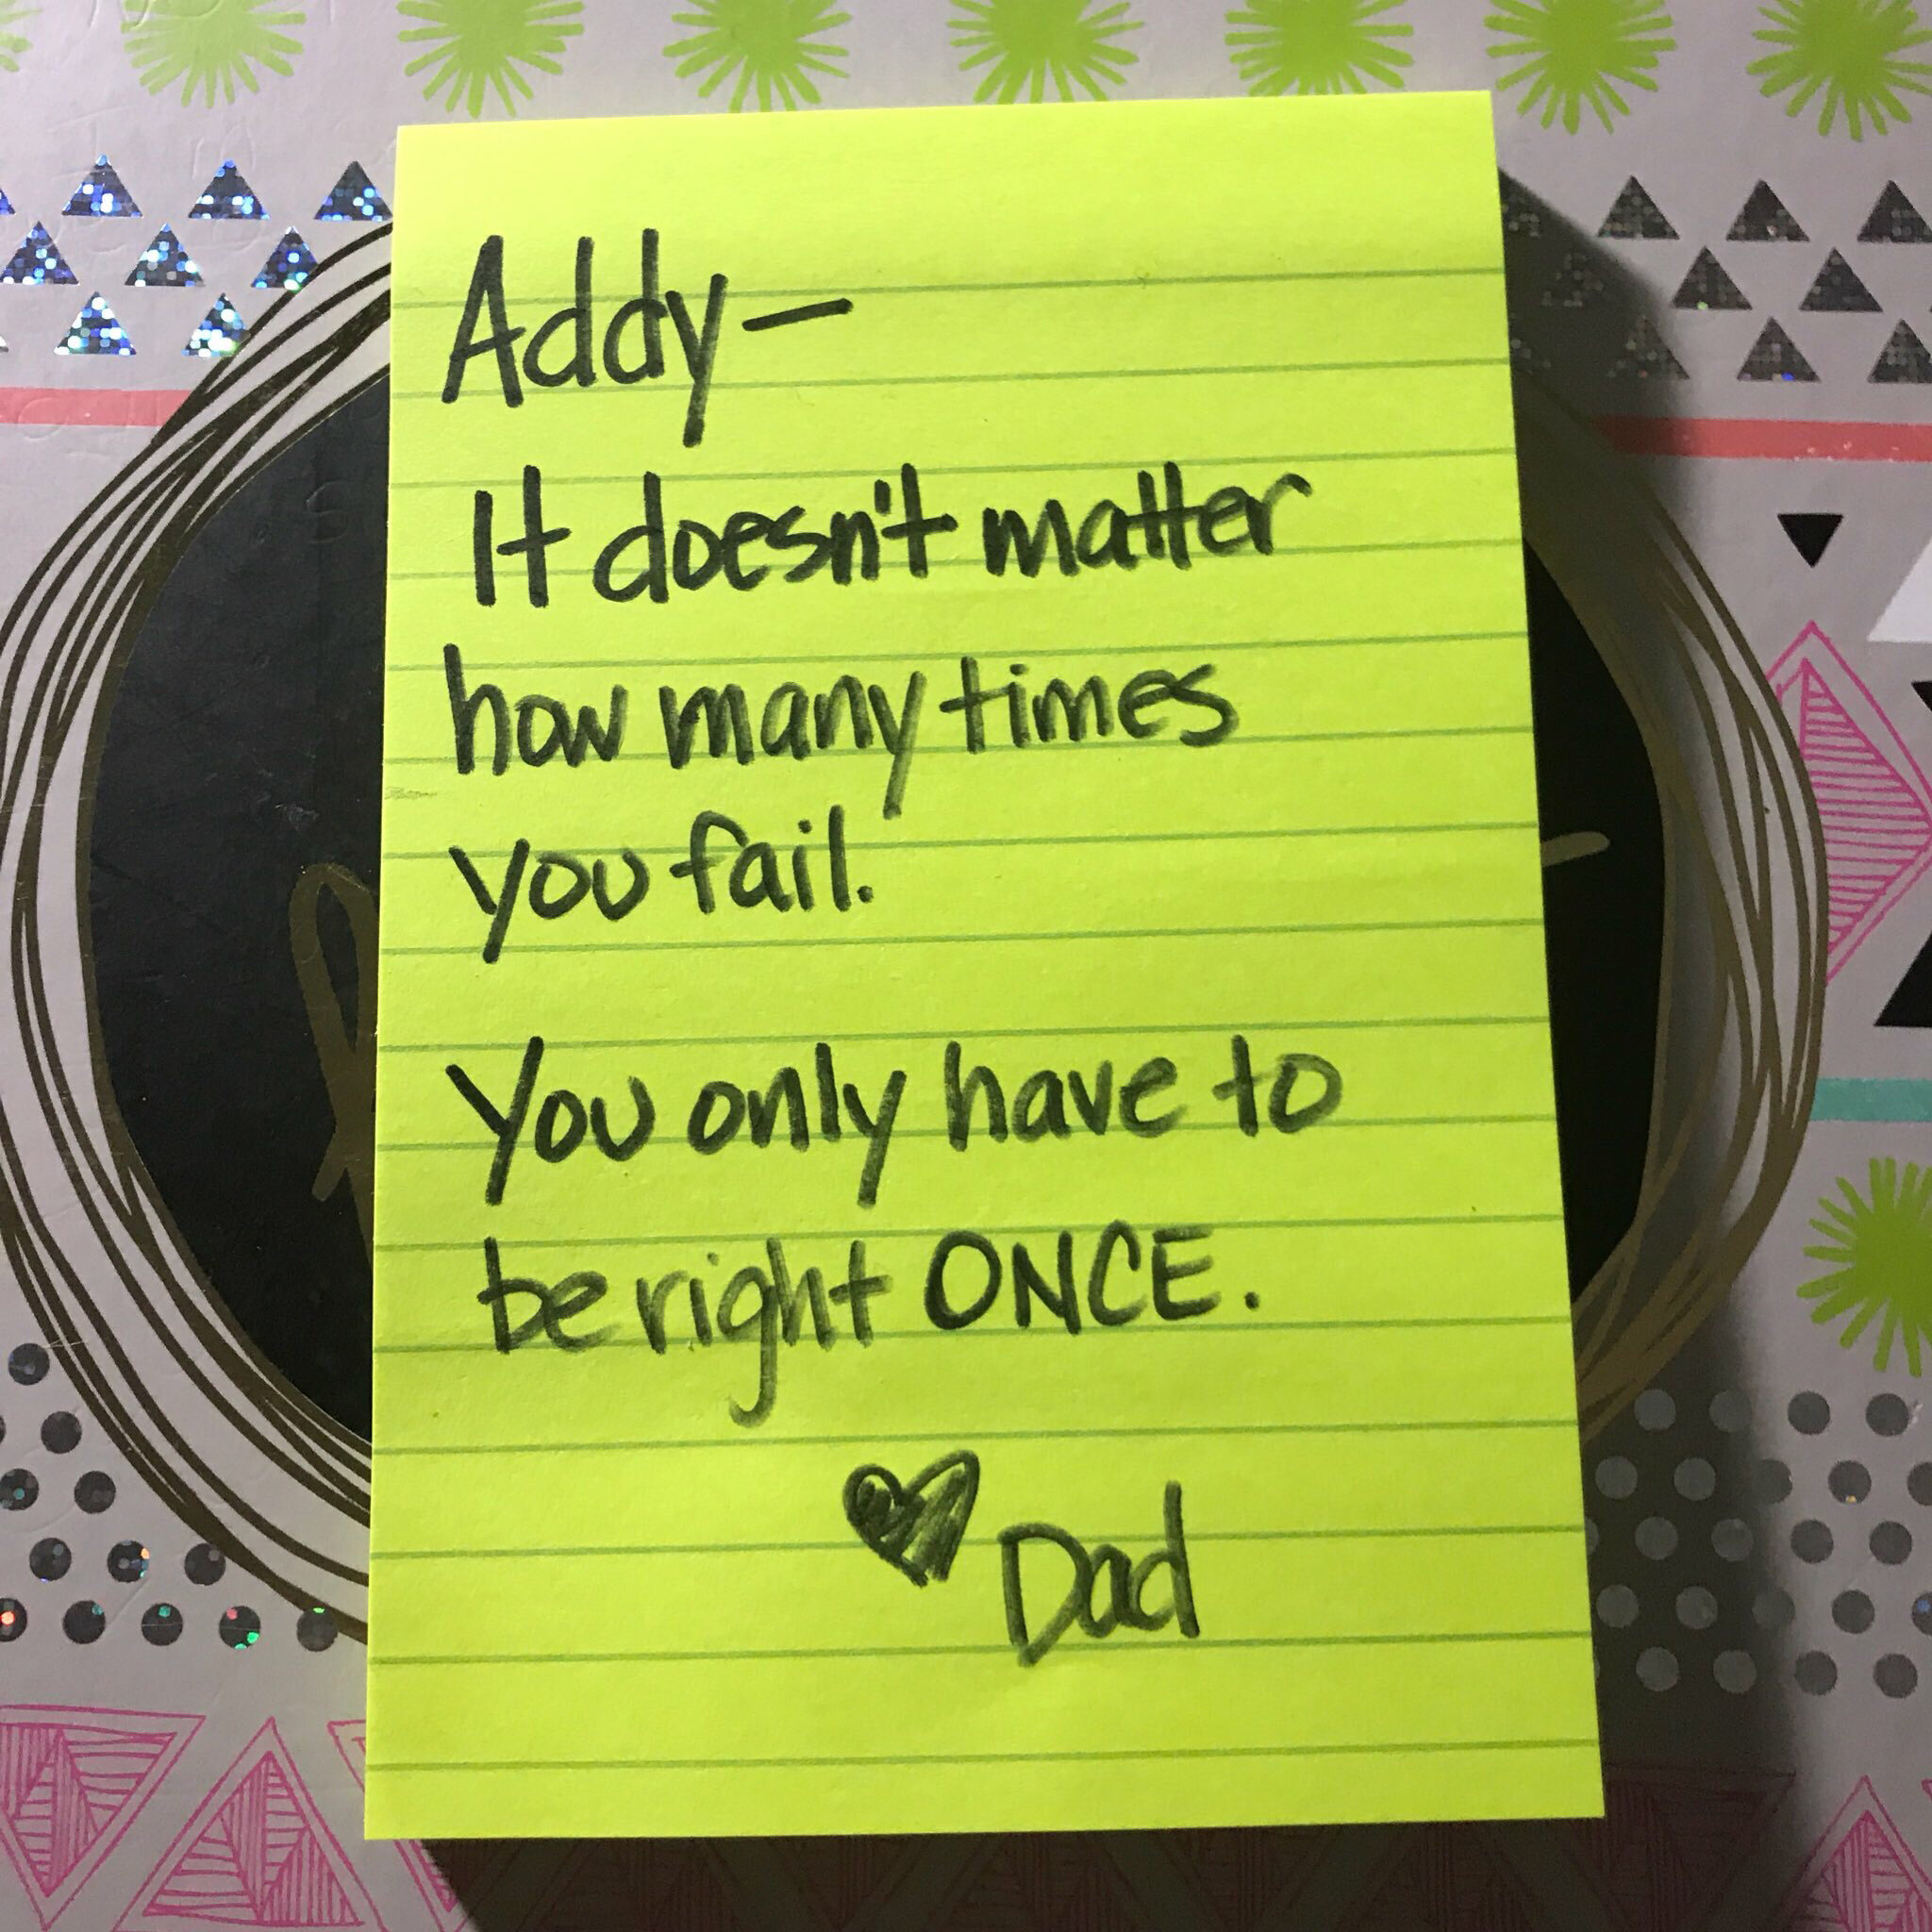 Addy—
It doesn't matter
how many times
you fail.
You only have to
be right ONCE.
♥ Dad